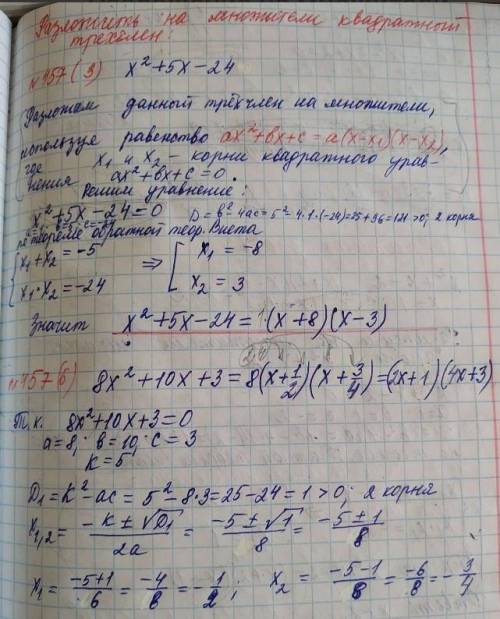 Разложить на множители квадратный
трехчлен:
№457(3) x² + 5x − 24
Разложим данный трёхчлен на множители,
используя равенство ax²+bx+c = a(x−x₁)(x−x₂),
где x₁ и x₂ – корни квадратного урав-
нения ax²+bx+c=0.
Решим уравнение:
x² + 5x − 24 = 0 D = b² − 4ac = 5² − 4·1·(−24) = 25 + 96 = 121 > 0; 2 корня
по теореме обратной теор. Виета
{ x₁ + x₂ = −5 ⇒ [ x₁ = −8
{ x₁ · x₂ = −24 [ x₂ = 3
Значит x² + 5x − 24 = 1(x + 8)(x − 3)
№457(б) 8x² + 10x + 3 = 8(x + 1/2)(x + 3/4) = (2x + 1)(4x + 3)
Т.к. 8x² + 10x + 3 = 0
a = 8; b = 10; c = 3
k = 5
D₁ = k² − ac = 5² − 8·3 = 25 − 24 = 1 > 0; 2 корня
x₁,₂ = (−k ± √D₁)/2a = (−5 ± √1)/8 = (−5 ± 1)/8
x₁ = (−5+1)/6 = −4/8 = −1/2; x₂ = (−5−1)/8 = −6/8 = −3/4